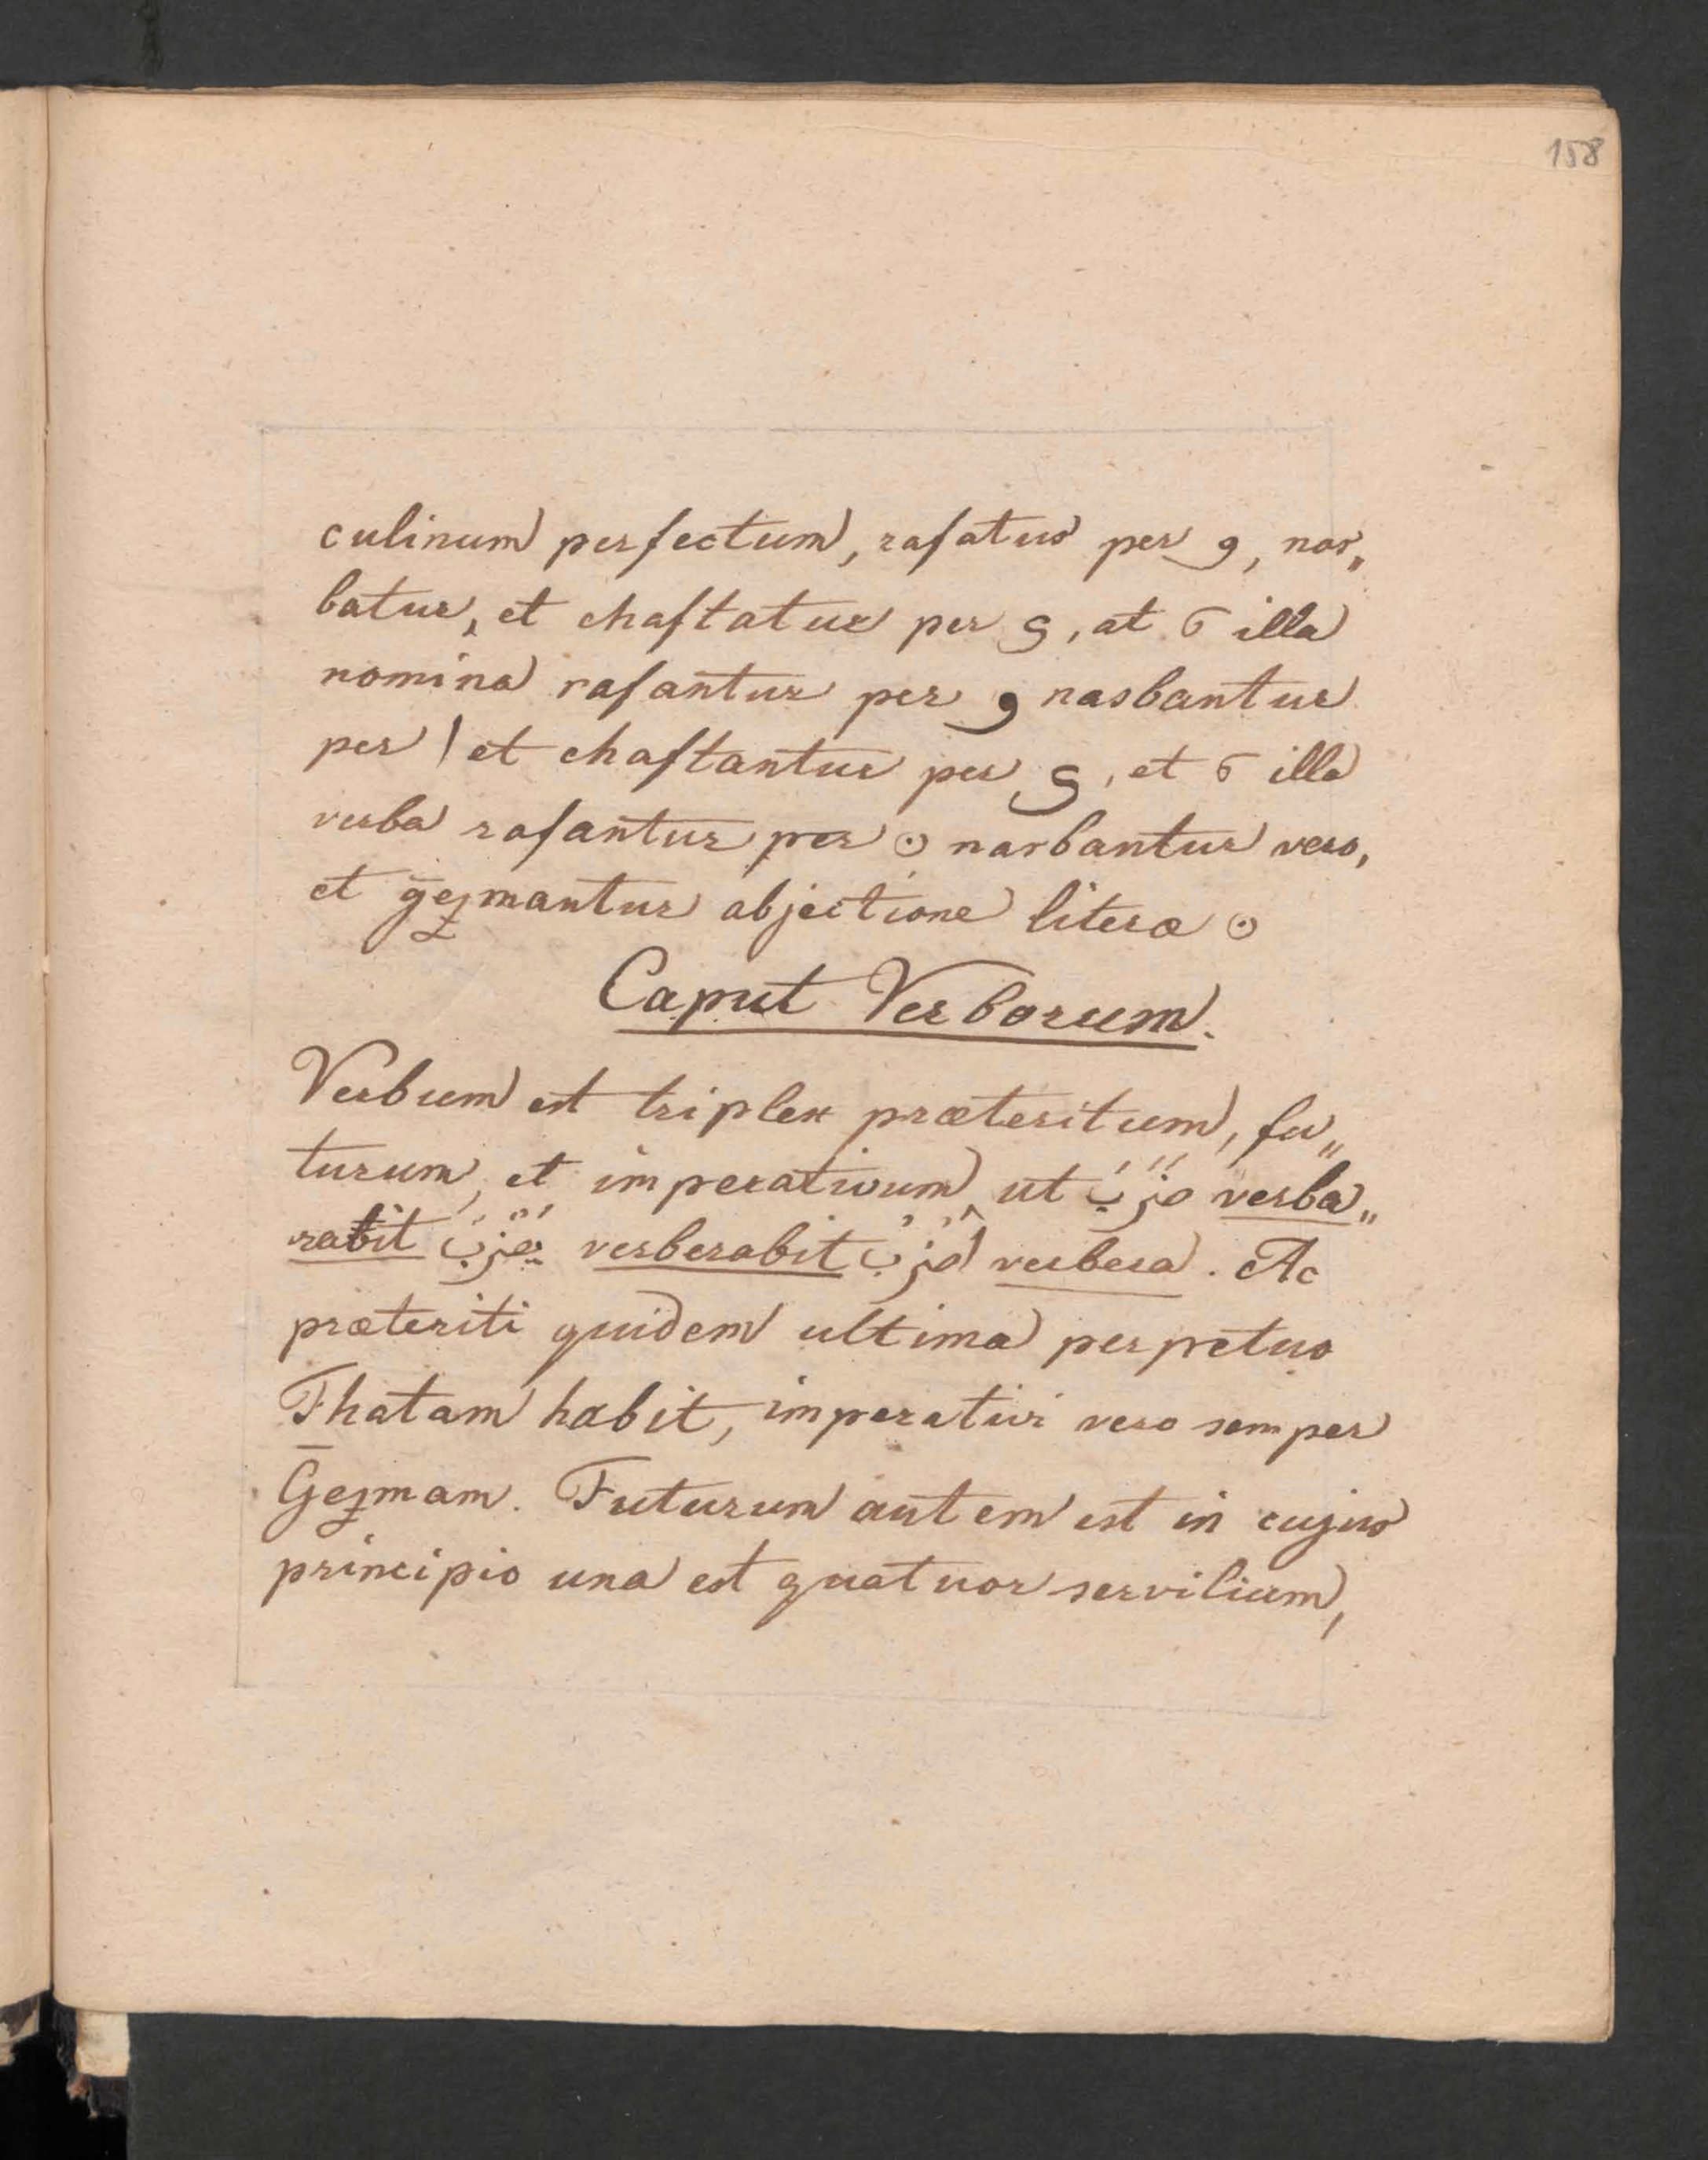 158
culinum perfectum, rafatur per و, nas„
batur, et chaftatur per ي, at 5 illa
nomina rafantur per و nasbantur
per ا et chaftantur per ي, et 5 illa
verba rafantur per ن nasbantur vero,
et gezmantur abjectione literæ ن
Caput Verborum.
Verbum est triplex præteritum, fu„
turum, et imperativum, ut ضَرَبَ verba„
rabit يَضْرِبُ verberabit اضْرِبْ verbera. Ac
præteriti quidem ultima perpetuo
Fhatam habit, imperativi vero semper
Gezmam. Futurum autem est in cujus
principio una est quatuor servilium,